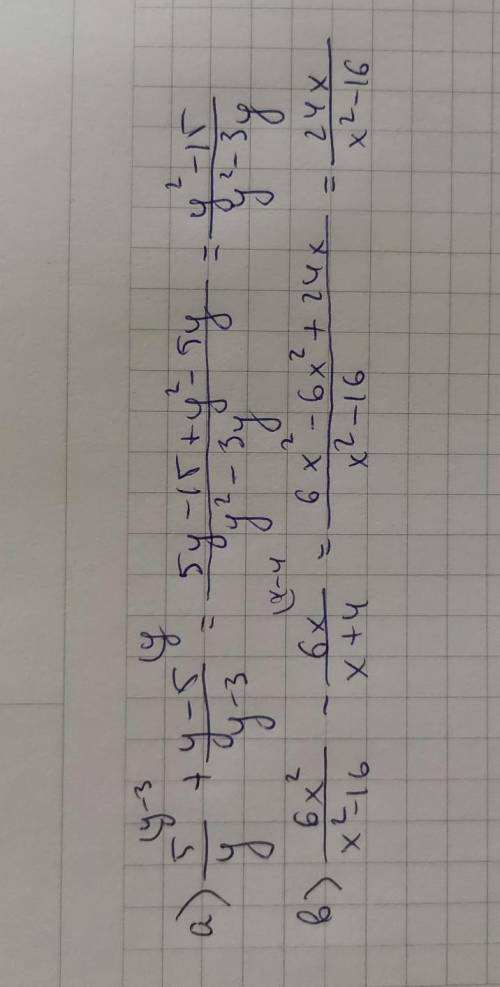 а) 5/y (y-3 + (y-5)/(y-3) (y = (5y-15+y²-5y)/(y²-3y) = (y²-15)/(y²-3y)
в) 6x²/(x²-16) - 6x/(x+4) (x-4 = (6x²-6x²+24x)/(x²-16) = 24x/(x²-16)